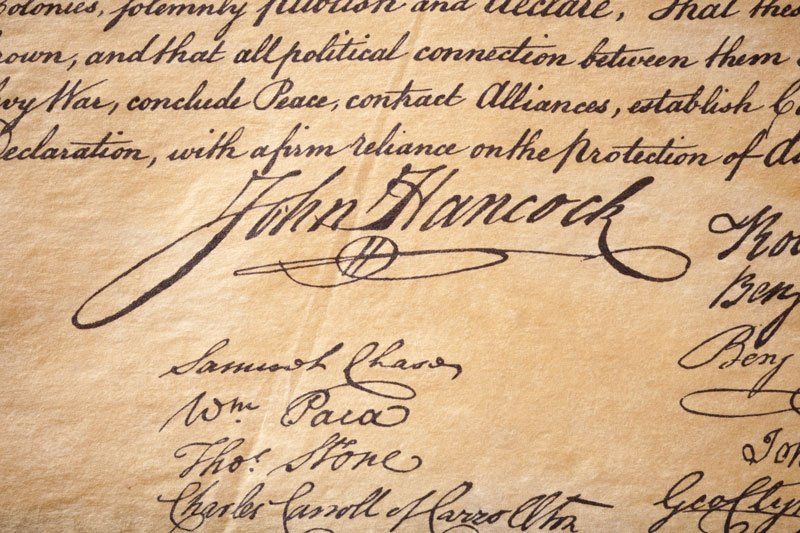 Colonies, solemnly publish and declare, That thes
rown, and that all political connection between them
vy War, conclude Peace, contract Alliances, establish Co
Declaration, with a firm reliance on the Protection of di
John Hancock
Samuel Chase
Wm. Paca
Thos. Stone
Charles Carroll of Carrollton
Rob
Benj
Benj
Joh
Geo Cly